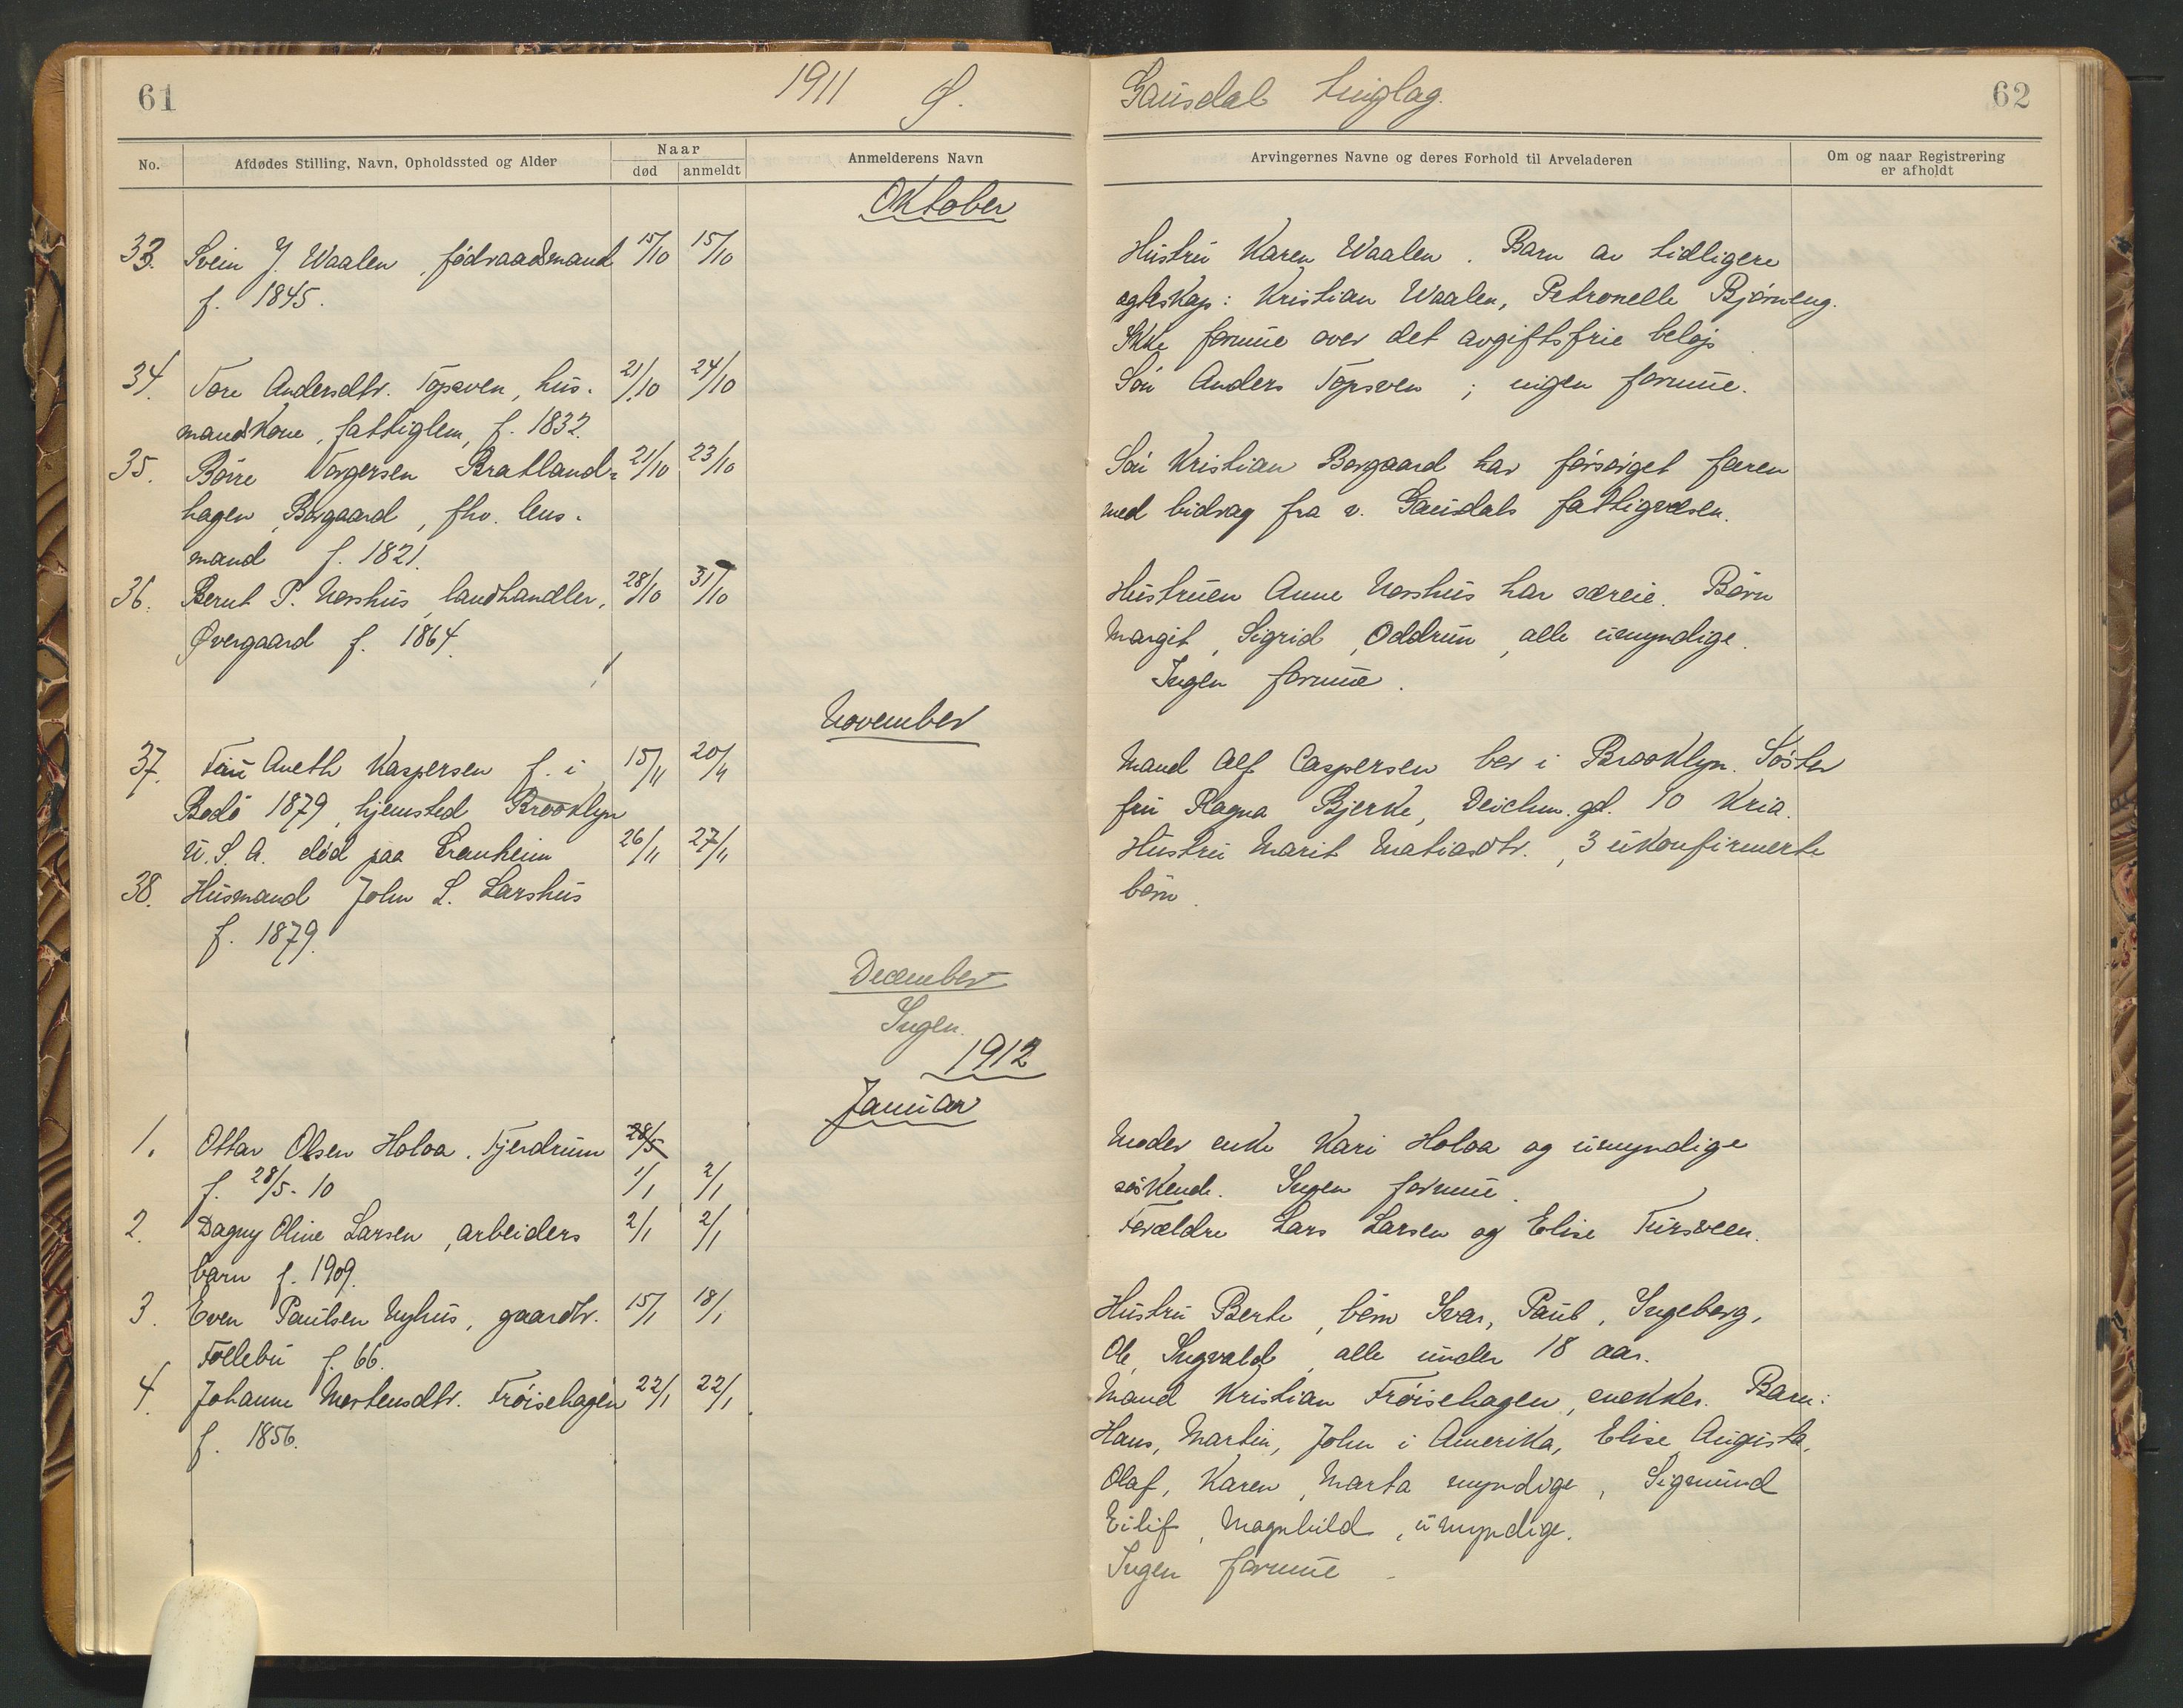 61
1911 Ø.
No.
Afdødes Stilling, Navn, Opholdssted og Alder
Naar
død
anmeldt
Anmelderens Navn
Oktober
33. Svein J. Waalen, födraadsmand 15/10 15/10
f. 1845.
34. Tore Andersdtr. Topsven, hus- 21/10 24/10
mandskone, fattiglem, f. 1832.
35. Börre Torgersen Bratland- 21/10 23/10
hagen, Borgaard, fhv. lens-
mand f. 1821.
36. Bernt P. Norshus, landhandler, 28/10 31/10
Øvergaard f. 1864.
November
37. Fru Aneth Kaspersen f. i 15/11 20/11
Bodö 1879, hjemsted Brooklyn
U.S.A. död paa Granheim 26/11 27/11
38. Husmand John L. Larshus
f. 1879.
December
Ingen.
1912
Januar
1. Ottar Olsen Holoa. Fjerdrum 28/5
f. 28/5-10 1/1 2/1
2. Dagny Oline Larsen, arbeiders 2/1 2/1
barn f. 1909.
3. Even Paulsen Nyhus, gaardbr. 15/1 18/1
Föllebu f. 66.
4. Johanne Mortensdtr. Fröisehagen 22/1 22/1
f. 1856.
Gausdal tinglag.
62
Arvingernes Navne og deres Forhold til Arveladeren
Om og naar Registrering
er afholdt
Hustru Karen Waalen. Barn av tidligere
egteskap: Kristian Waalen, Petronelle Bjørneng.
Ikke formue over det avgiftsfrie beløp
Sön Anders Topsven; ingen formue.
Sön Kristian Borgaard har forsörget faren
med bidrag fra v. Gausdals fattigvæsen.
Hustruen Anne Norshus har særeie. Börn
Margit, Sigrid, Oddrun, alle umyndige.
Ingen formue.
Mand Alf Caspersen bor i Brooklyn. Söster
fru Ragna Bjerke, Deichm.gd. 10 Kria.
Hustru Marit Matiasdtr., 3 ukonfirmerte
börn.
Moder enke Kari Holoa og umyndige
söskende. Ingen formue.
Forældre Lars Larsen og Elise Tursveen.
Hustru Berte, börn Ivar, Paul, Ingeborg,
Ole, Ingvald, alle under 18 aar.
Mand Kristian Fröisehagen, snekker. Barn:
Hans, Martin, John i Amerika, Elise Augusta,
Olaf, Karen, Marta myndige, Sigmund
Eilif, Magnhild, umyndige.
Ingen formue